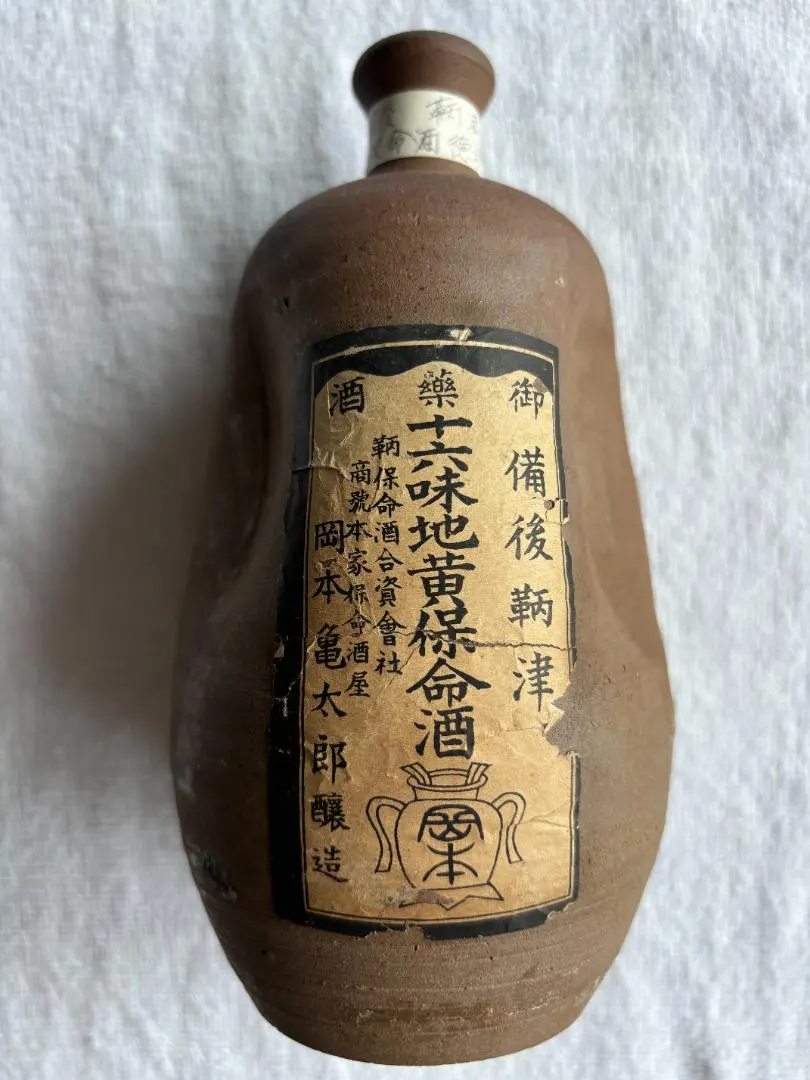 鞆
命酒
御藥酒
備後鞆津
十六味地黄保命酒
鞆保命酒合資會社
商號本家保命酒屋
岡本亀太郎釀造
岡本